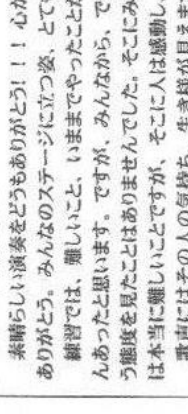 素晴らしい演奏をどうもありがとう！！心か
ありがとう。みんなのステージに立つ姿、とて
練習では、難しいこと、いままでやったことか
んあったと思います。ですが、みんなから、で
う態度を見たことはありませんでした。そこにみ
は本当に難しいことですが、そこに人は感動し、
音にはその人の気持ち、生き様が見えま